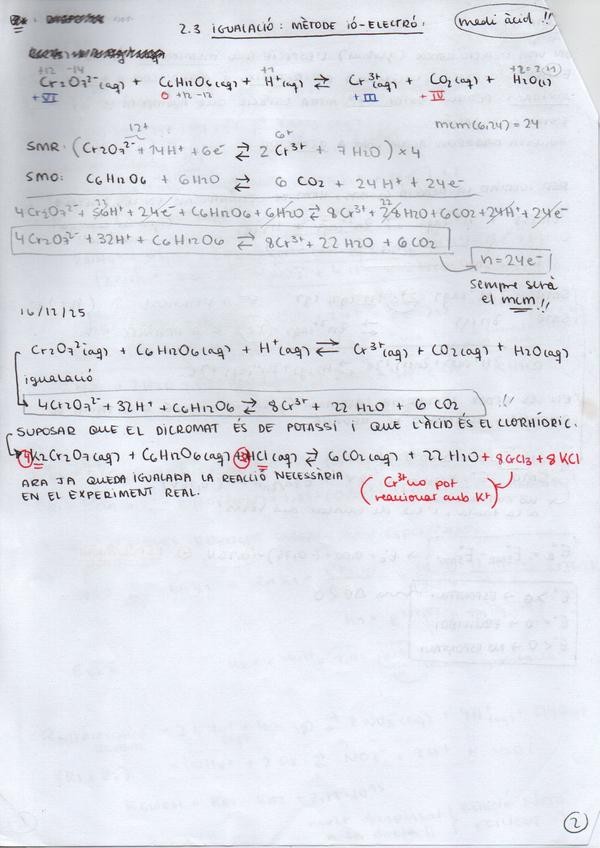 2.3 IGUALACIÓ: MÈTODE IÓ-ELECTRÓ. medi àcid !!
+12 -14 +1 +2=2(+1)
Cr2O7²⁻(aq) + C6H12O6(aq) + H⁺(aq) ⇄ Cr³⁺(aq) + CO2(aq) + H2O(l)
+VI 0 +12 -12 +III +IV
12+ 6+ mcm(6,24)=24
SMR: (Cr2O7²⁻ + 14H⁺ + 6e⁻ ⇄ 2Cr³⁺ + 7H2O) × 4
SMO: C6H12O6 + 6H2O ⇄ 6CO2 + 24H⁺ + 24e⁻
4Cr2O7²⁻ + 56H⁺ + 24e⁻ + C6H12O6 + 6H2O ⇄ 8Cr³⁺ + 28H2O + 6CO2 + 24H⁺ + 24e⁻
22
4Cr2O7²⁻ + 32H⁺ + C6H12O6 ⇄ 8Cr³⁺ + 22H2O + 6CO2
n=24e⁻
sempre serà
el mcm!!
16/12/25
Cr2O7²⁻(aq) + C6H12O6(aq) + H⁺(aq) ⇄ Cr³⁺(aq) + CO2(aq) + H2O(aq)
igualació
4Cr2O7²⁻ + 32H⁺ + C6H12O6 ⇄ 8Cr³⁺ + 22H2O + 6CO2 !!
SUPOSAR QUE EL DICROMAT ÉS DE POTASSI I QUE L'ÀCID ÉS EL CLORHÍDRIC.
4K2Cr2O7(aq) + C6H12O6(aq) + 32HCl(aq) ⇄ 6CO2(aq) + 22H2O + 8CrCl3 + 8KCl
ARA JA QUEDA IGUALADA LA REACCIÓ NECESSÀRIA
EN EL EXPERIMENT REAL.
(Cr³⁺ no pot
reaccionar amb K⁺)
2